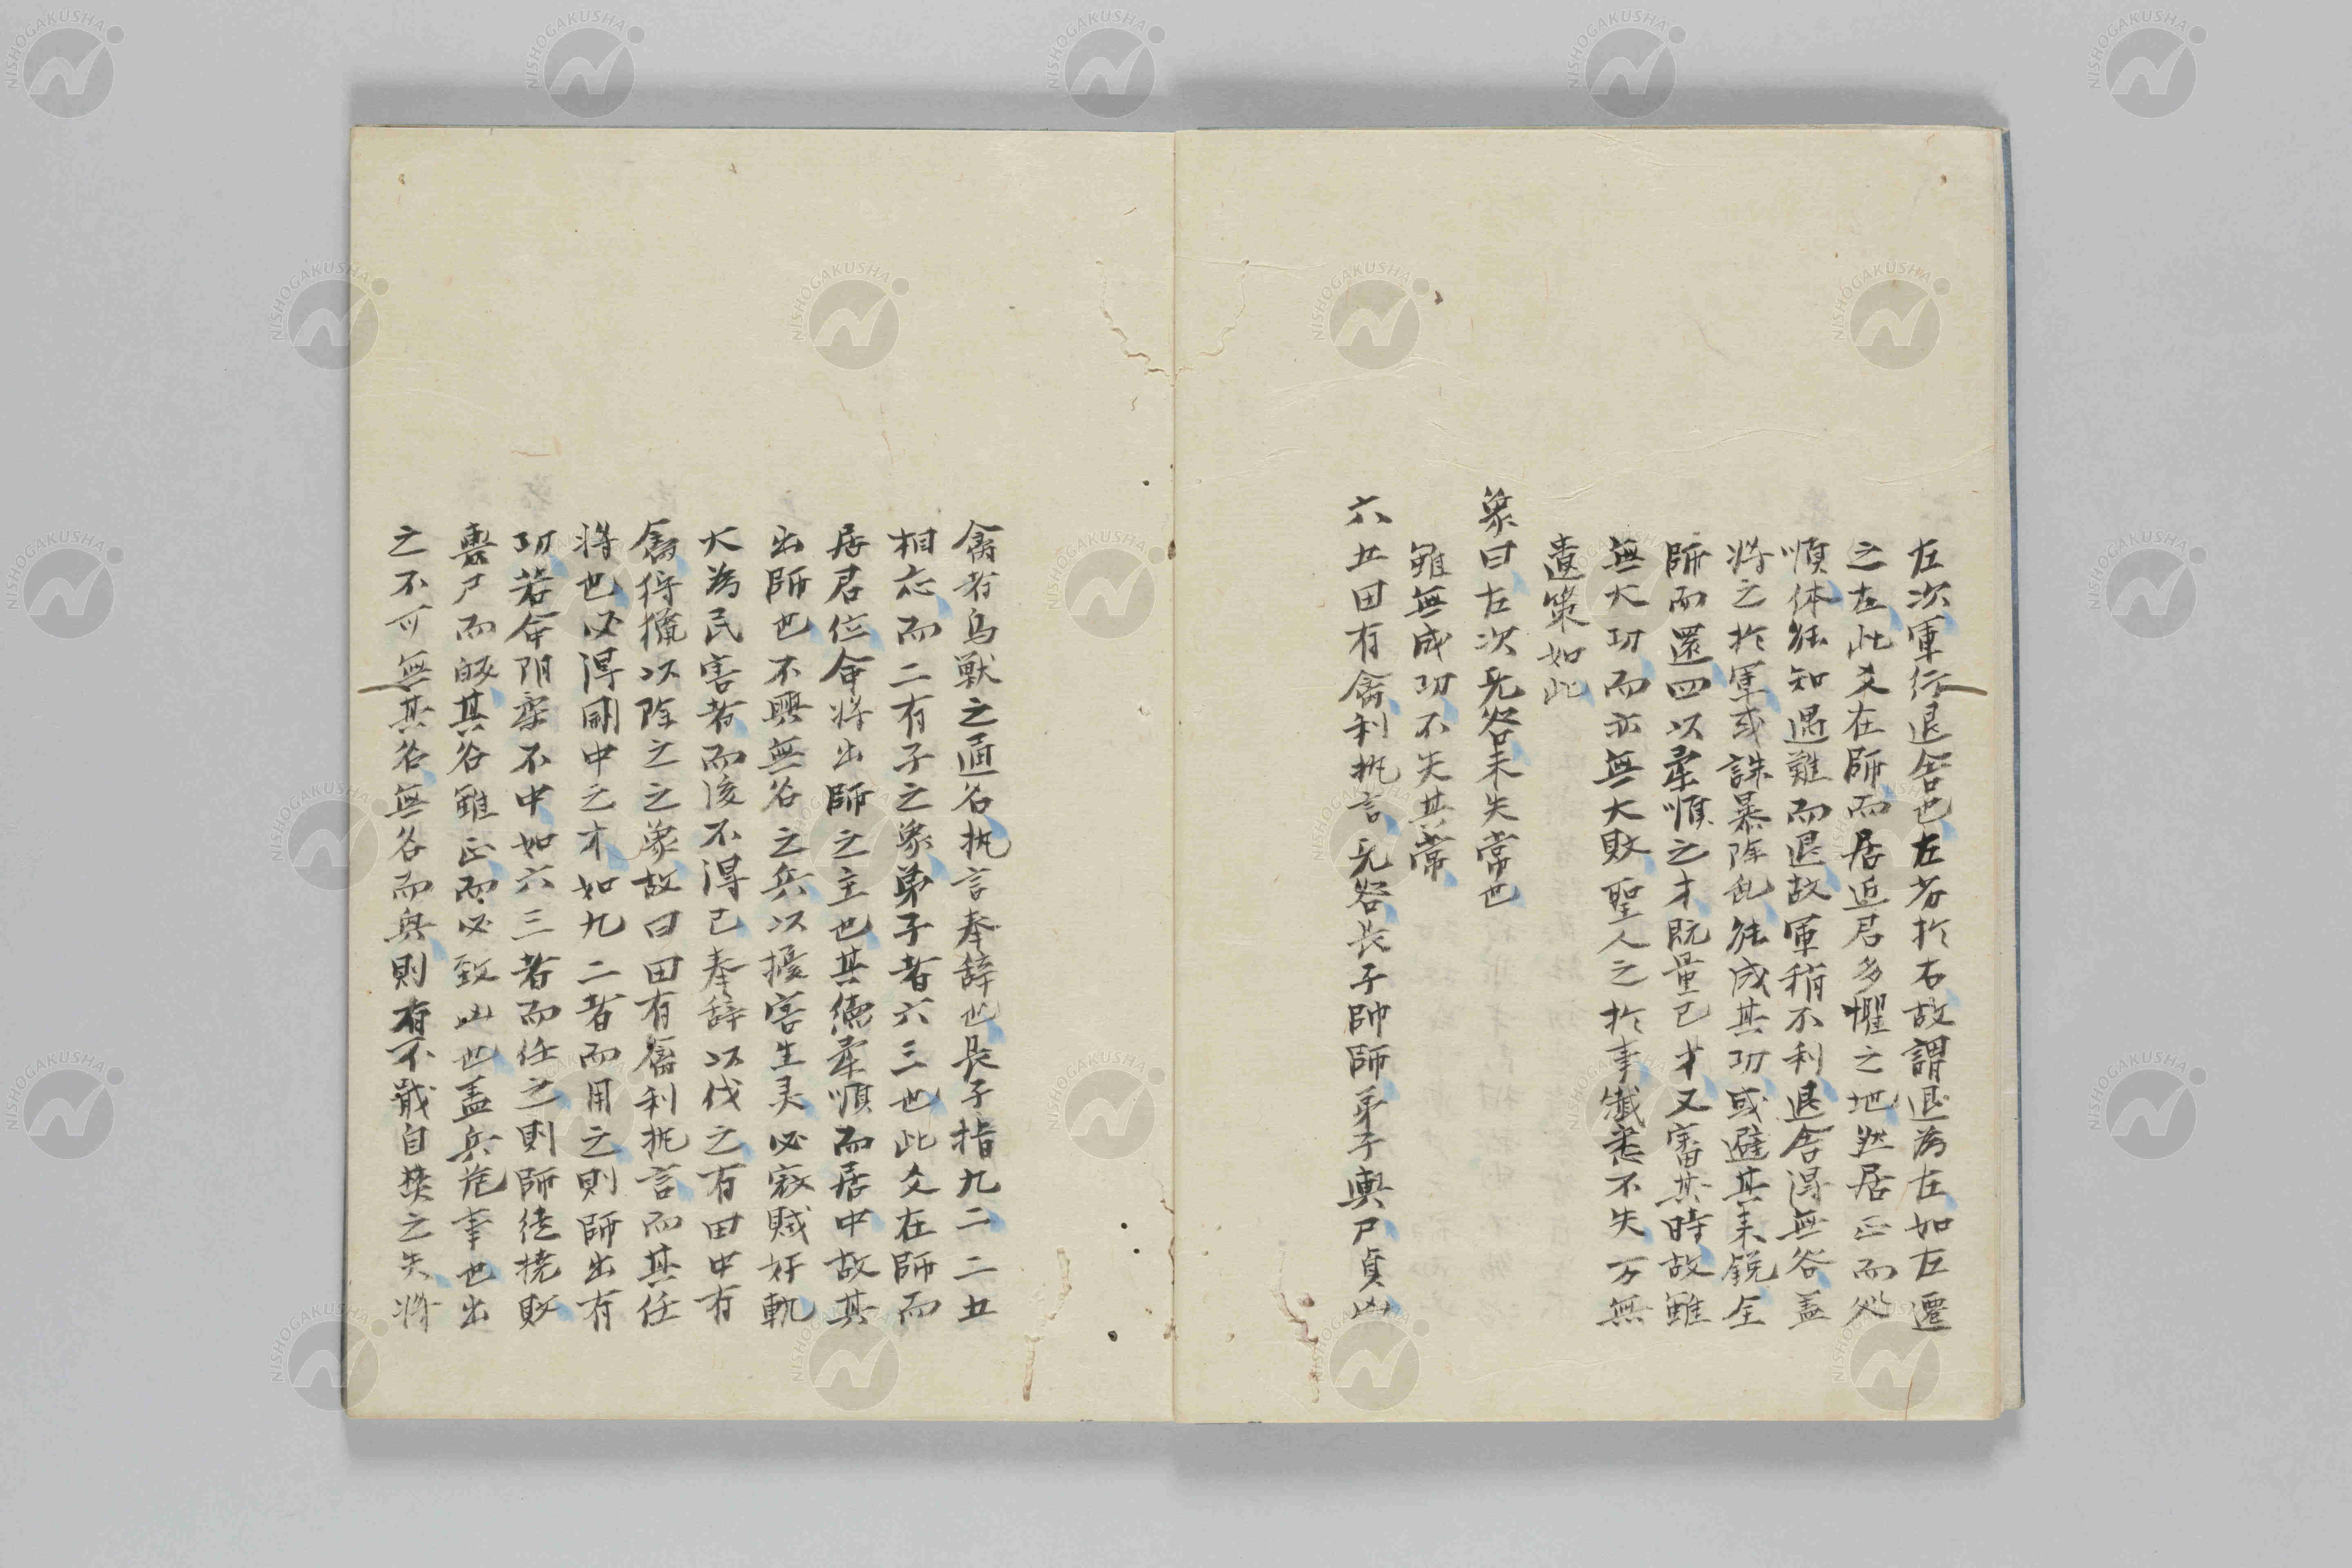 左次軍行退舍也左劣於右故謂退為左如左遷
之左此爻在師而居近君多懼之地然居正而処
順体能知遇難而退故軍稍不利退舍得無咎蓋
将之於軍或誅暴除乱能成其功或避其来鋭全
師而還四以柔順之才既量已才又審其時故雖
無大功而亦無大敗聖人之於事懺悉不失万無
遺策如此
象曰左次无咎未失常也
雖無成功不失其常
六五田有禽利执言无咎長子帥師弟子輿尸貞凶
禽者鳥獣之通名执言奉辞也長子指九二二五
相応而二有子之象弟子者六三也此爻在師而
居君位命将出師之主也其徳柔順而居中故其
出師也不興無名之兵以擾害生灵必寇賊奸軌
大為民害者而後不得已奉辞以伐之有田中有
禽狩猟以除之之象故曰田有禽利执言而其任
将也必得剛中之才如九二者而用之則師出有
功若命阴柔不中如六三者而任之則師徒撓敗
輿尸而皈其咎雖正而必致凶也蓋兵危事也出
之不可無其名無名而興則有不戢自焚之失将
NISHOGAKUSHA